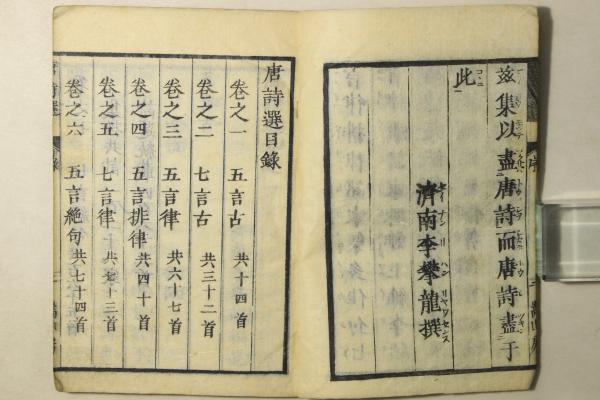 茲集以盡唐詩而唐詩盡于
此
濟南李攀龍撰
唐詩選目錄
卷之一 五言古 共十四首
卷之二 七言古 共三十二首
卷之三 五言律 共六十七首
卷之四 五言排律 共四十首
卷之五 七言律 共七十三首
卷之六 五言絶句 共七十四首